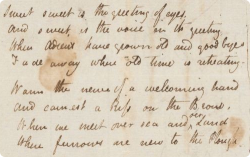 Sweet sweet is the greeting of eyes,
And sweet is the voice in its greeting
When Adieus have grown old and goodbyes
Fade away where old time is retreating
Warm the nerve of a welcoming hand
And earnest a kiss on the Brow,
When we meet over sea and o'er Land
Where furrows are new to the Plough.